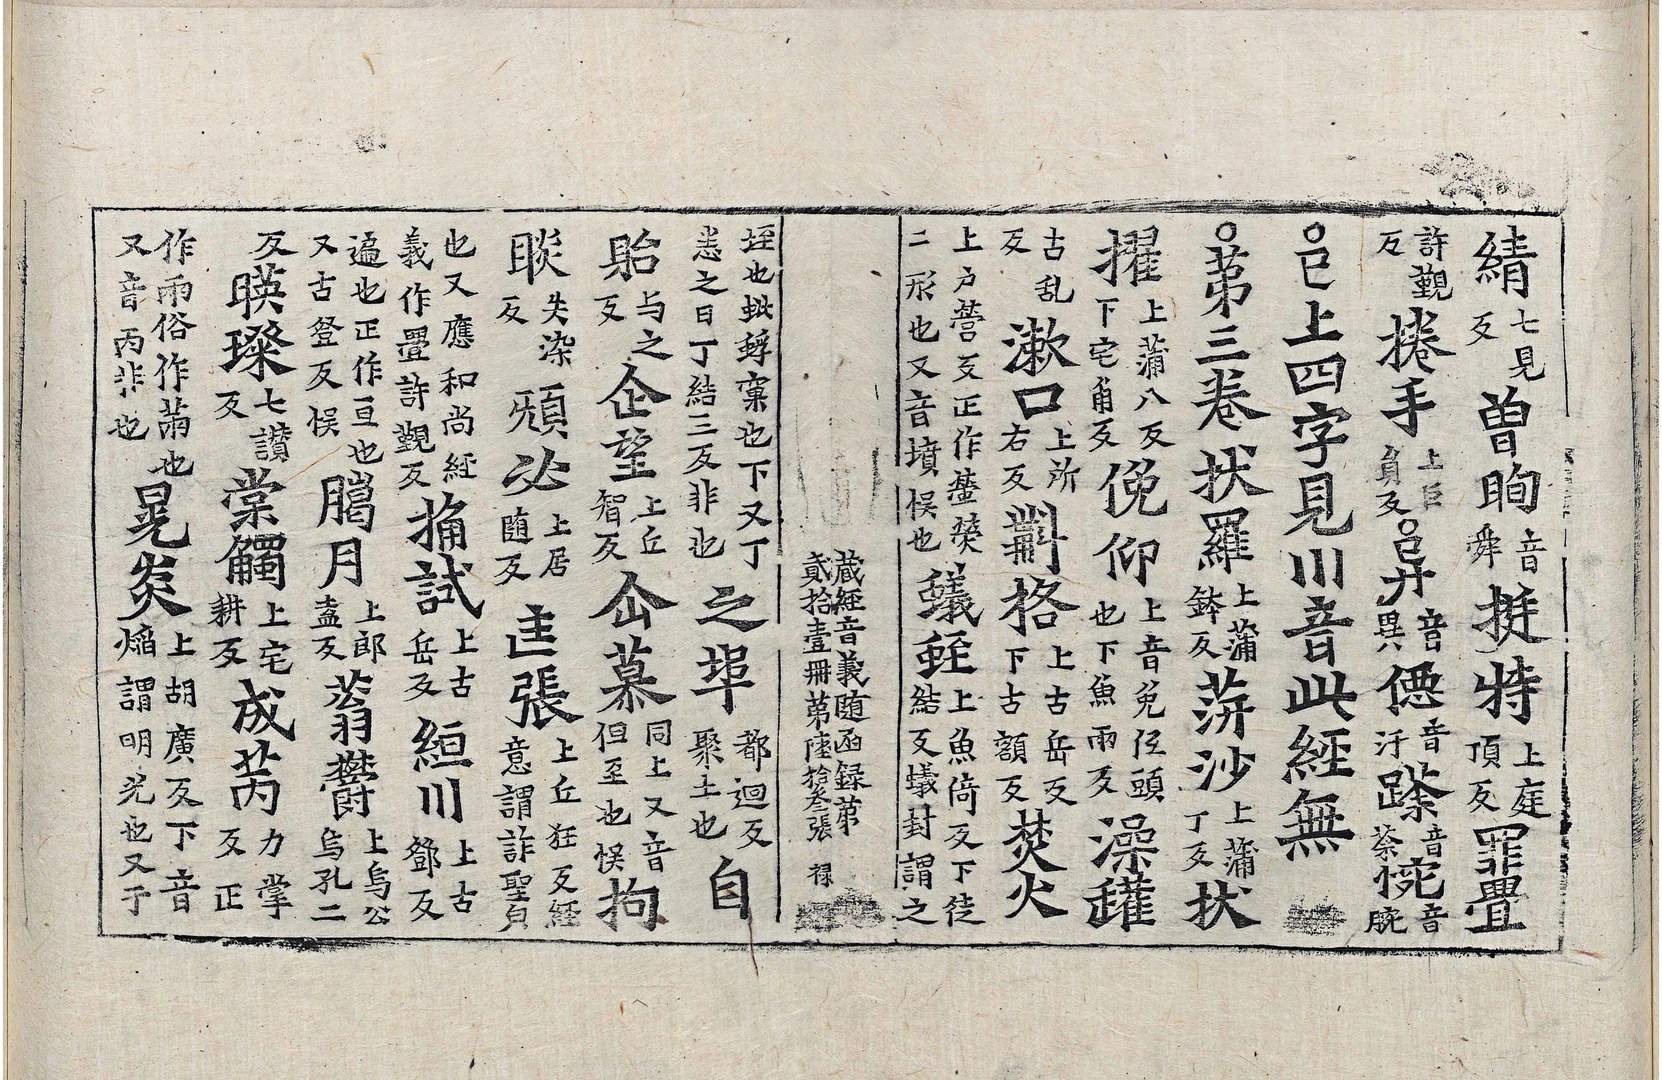 綪七見反曽眴音舜挺特上庭頂反罪疊
許覲反捲手上臣負反○㠯廾音異僫音汙蹂音荼惋音腕
○㠯上四字見川音此經無
○苐三卷状羅上蒲鉢反蓱沙上蒲丁反状
擢上蒲八反下宅角反俛仰上音免伍頭也下魚兩反澡鑵
古乱反漱口上所右反斠格上古岳反下古額反焚火
上户營反正作螢煢二形也又音墳悮也蟻蛭上魚倚反下徒結反蟻封謂之
蔵經音義随函録苐貳拾壹冊苐陸拾叁張 禄
垤也蚍蜉窠也下又丁悉之日丁結三反非也之埠都迴反聚土也自
貽与之反企望上丘智反仚慕同上又音但至也悮拘
睒失染反頍必上居随反誆張上丘狂反經意謂詐聖貞
也又應和尚經義作疊許覲反捔試上古岳反絙川上古鄧反
遍也正作亘也又古登反悮臈月上郎盍反蓊欝上烏公烏孔二
反暎璨七讃反棠觸上宅耕反成芮力掌反正
作兩俗作䓣也又音丙非也晃炎上胡廣反下音焔謂明光也又于